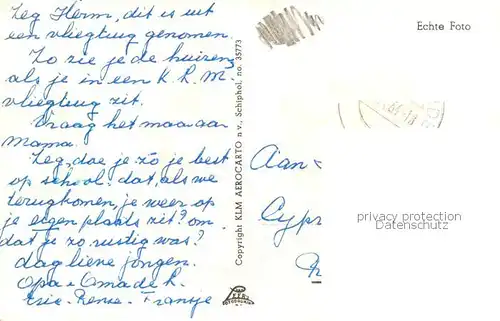 Zeg Herm, dit is uit
een vliegtuig genomen.
Zo zie je de huizen,
als je in een K.L.M.
vliegtuig zit.
Vraag het maar aan
Mama.
Zeg, doe je zo je best
op school? dat, als we
terugkomen, je weer op
je eigen plaats zit? om
dat je zo rustig was?
dag lieve jongen.
Opa + Oma de
Fransje
Copyright KLM AEROCARTO n.v., Schiphol, no. 35773
Echte Foto
Aan
privacy protection
Datenschutz